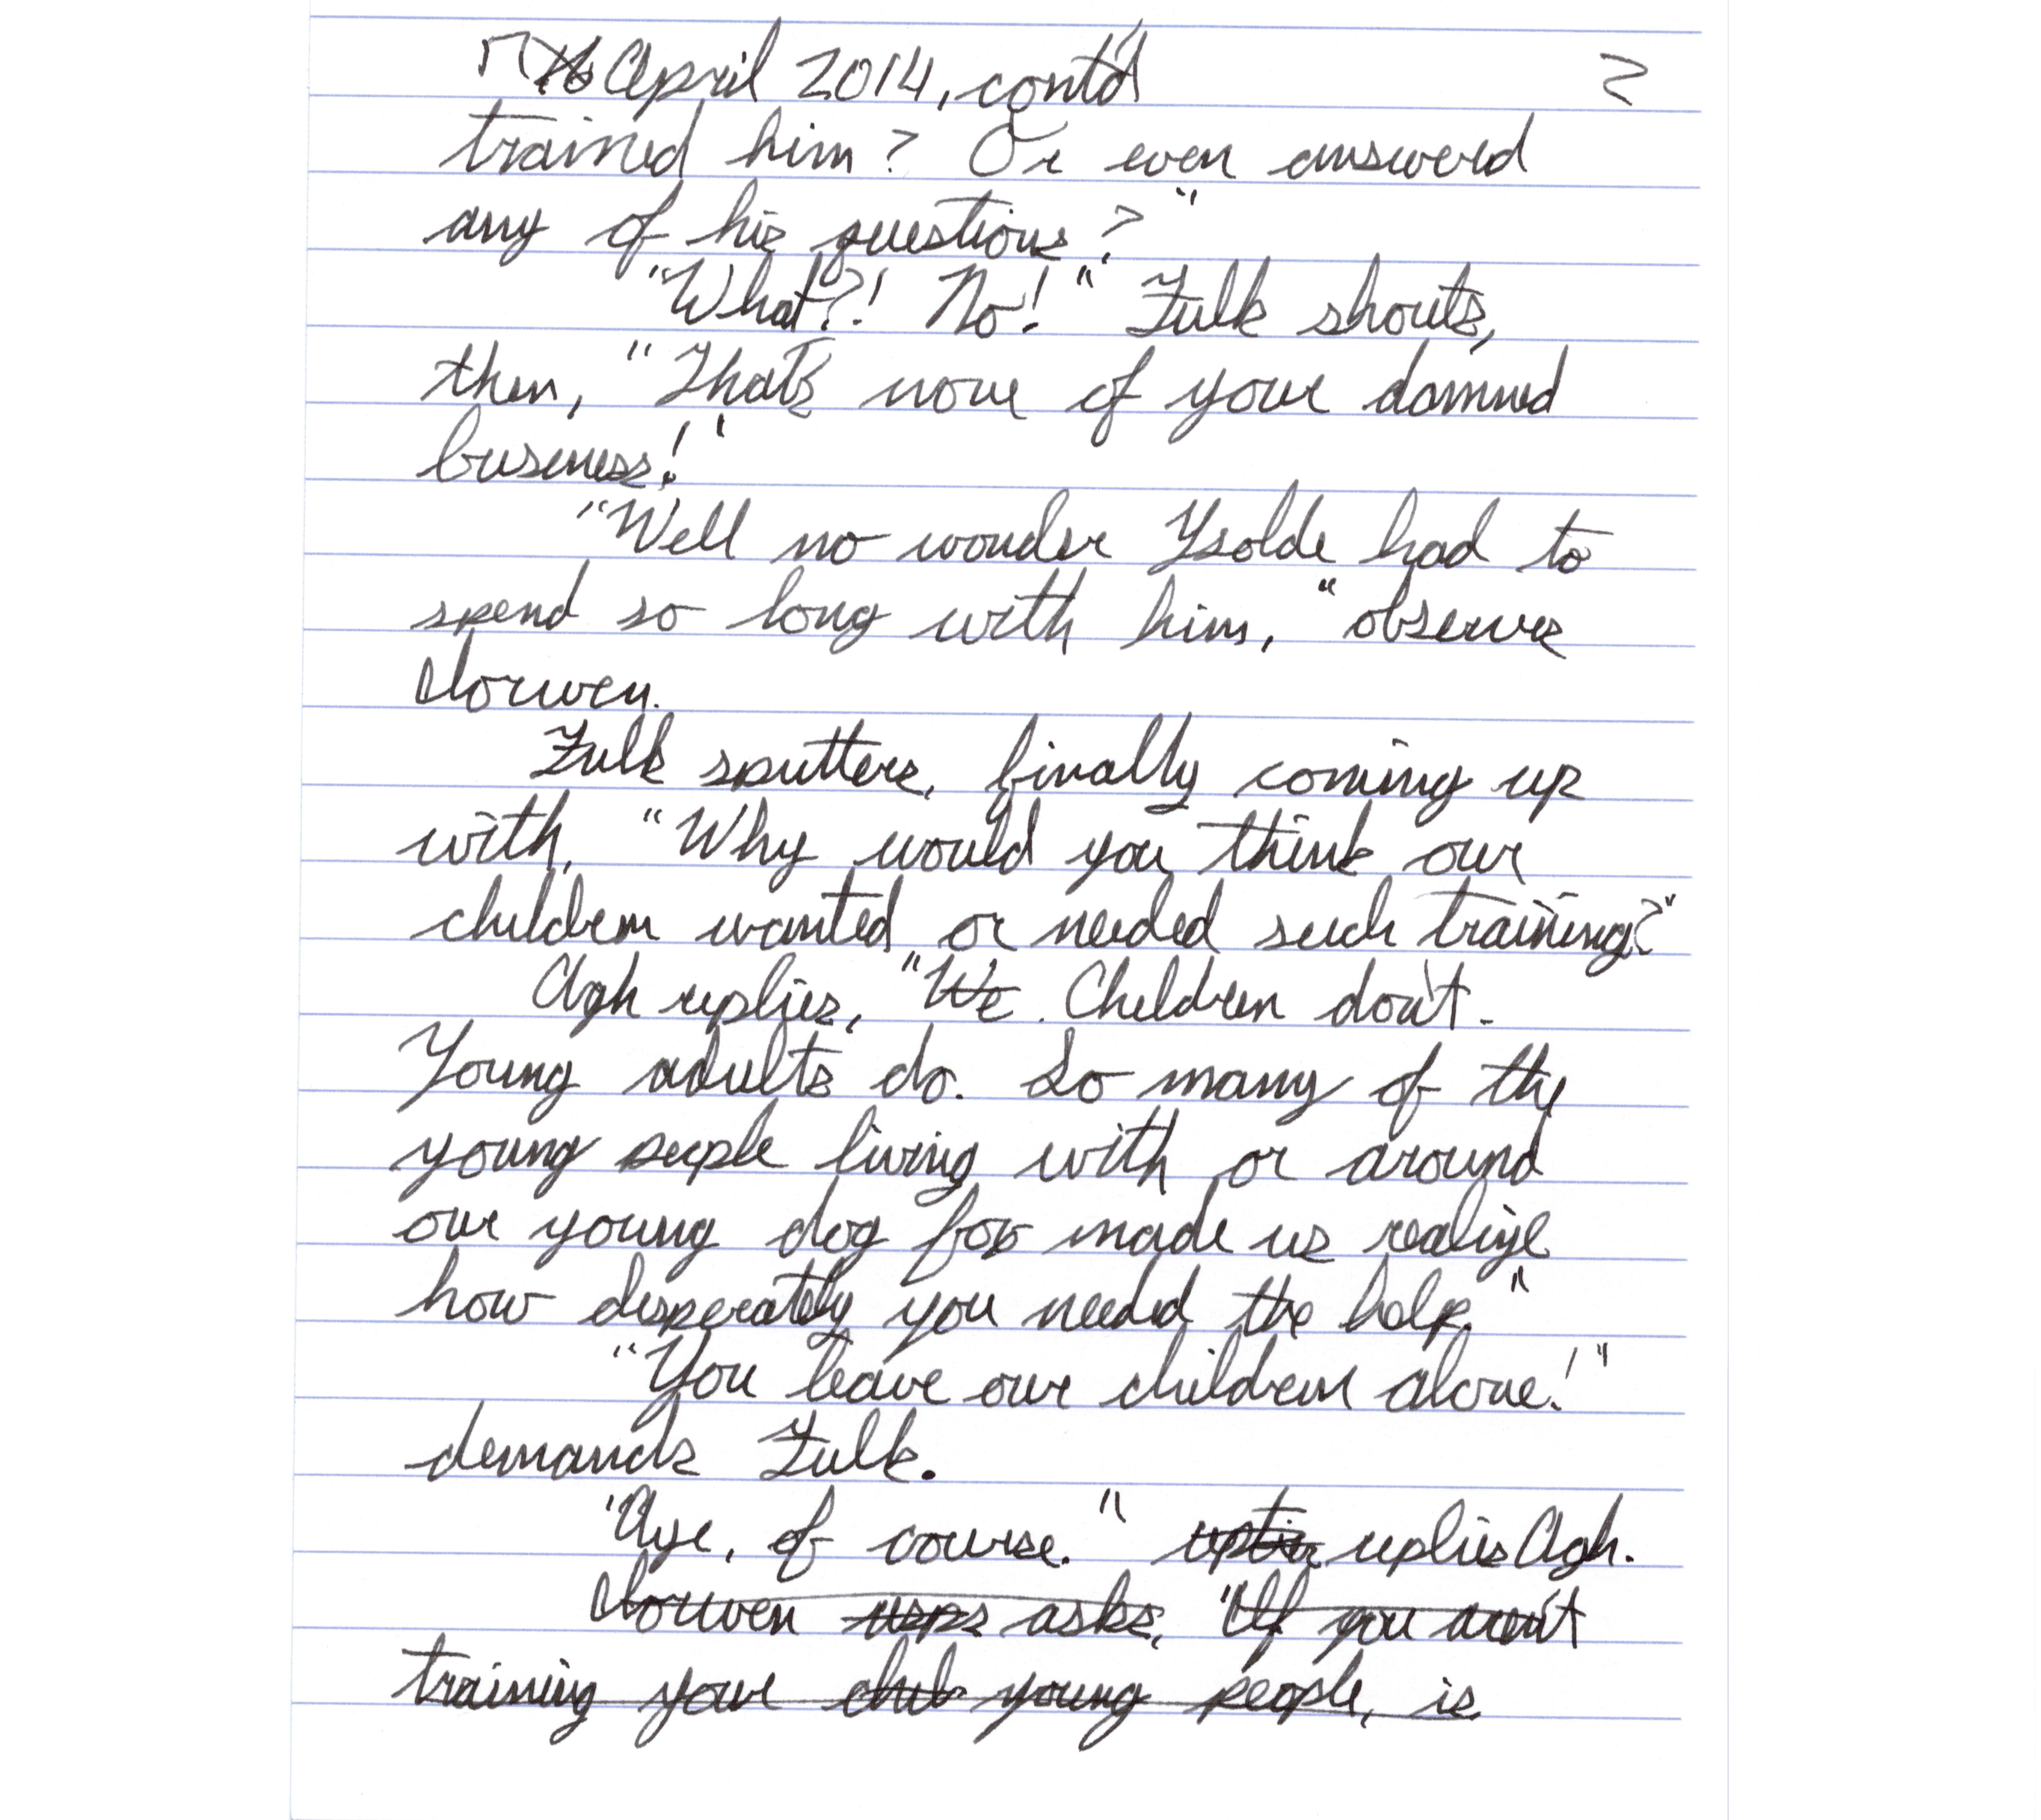 17 16 April 2014, cont'd 2
trained him? Or even answered
any of his questions?"
"What?! No!" Fulk shouts,
then, "That's none of your damned
business!"
"Well no wonder Ysolde had to
spend so long with him," observes
Iorwen.
Fulk sputters, finally coming up
with, "Why would you think our
children wanted or needed such training?"
Agh replies, "We. Children don't.
Young adults do. So many of the
young people living with or around
our young dog fox made us realize
how desperately you needed the help."
"You leave our children alone!"
demands Fulk.
"Aye, of course." replies Agh.
Iorwen asks, "If you aren't
training your young people, is